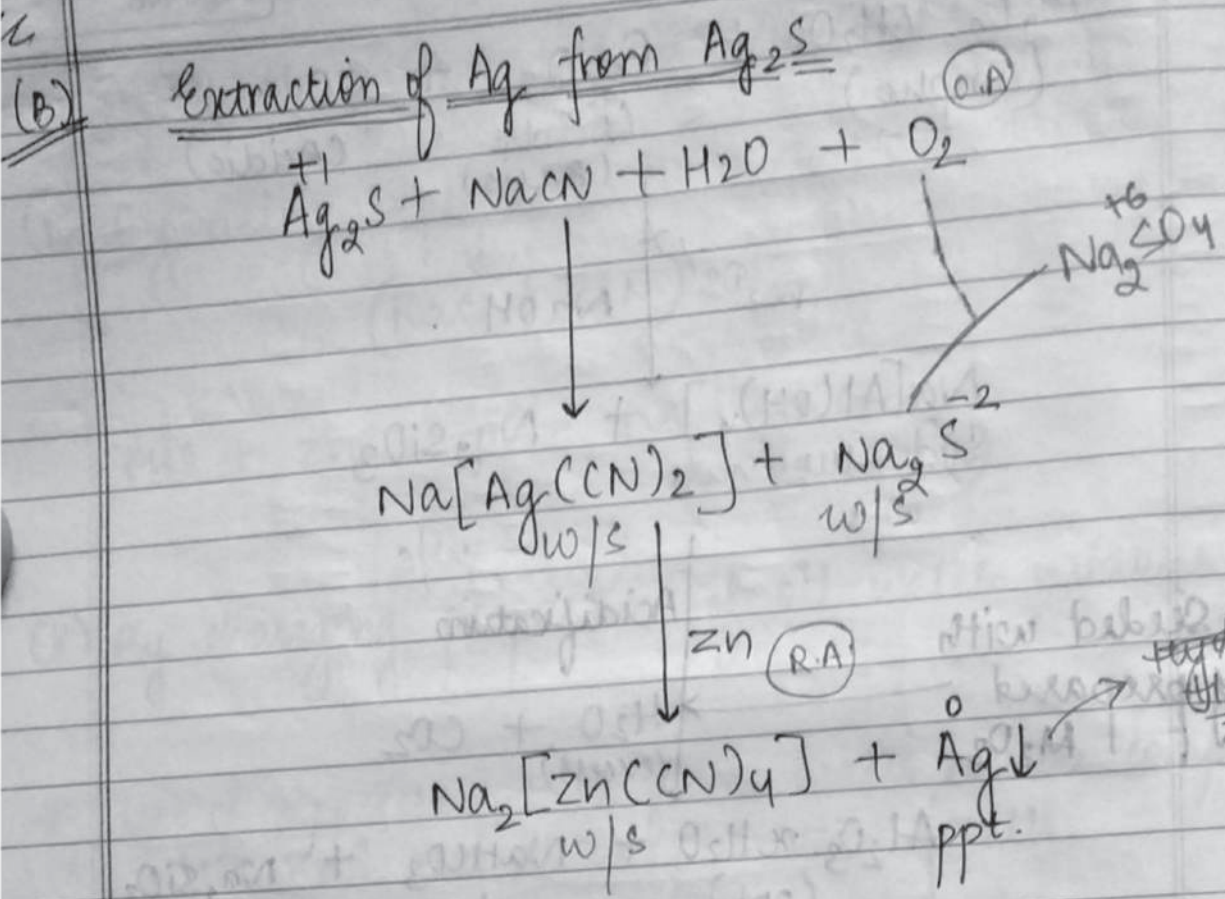 (B) Extraction of Ag from Ag2S
O.A
+1
Ag2S + NaCN + H2O + O2
+6
Na2SO4
-2
Na[Ag(CN)2] + Na2S
w/s w/s
Zn R.A
0
Na2[Zn(CN)4] + Ag↓
w/s ppt.